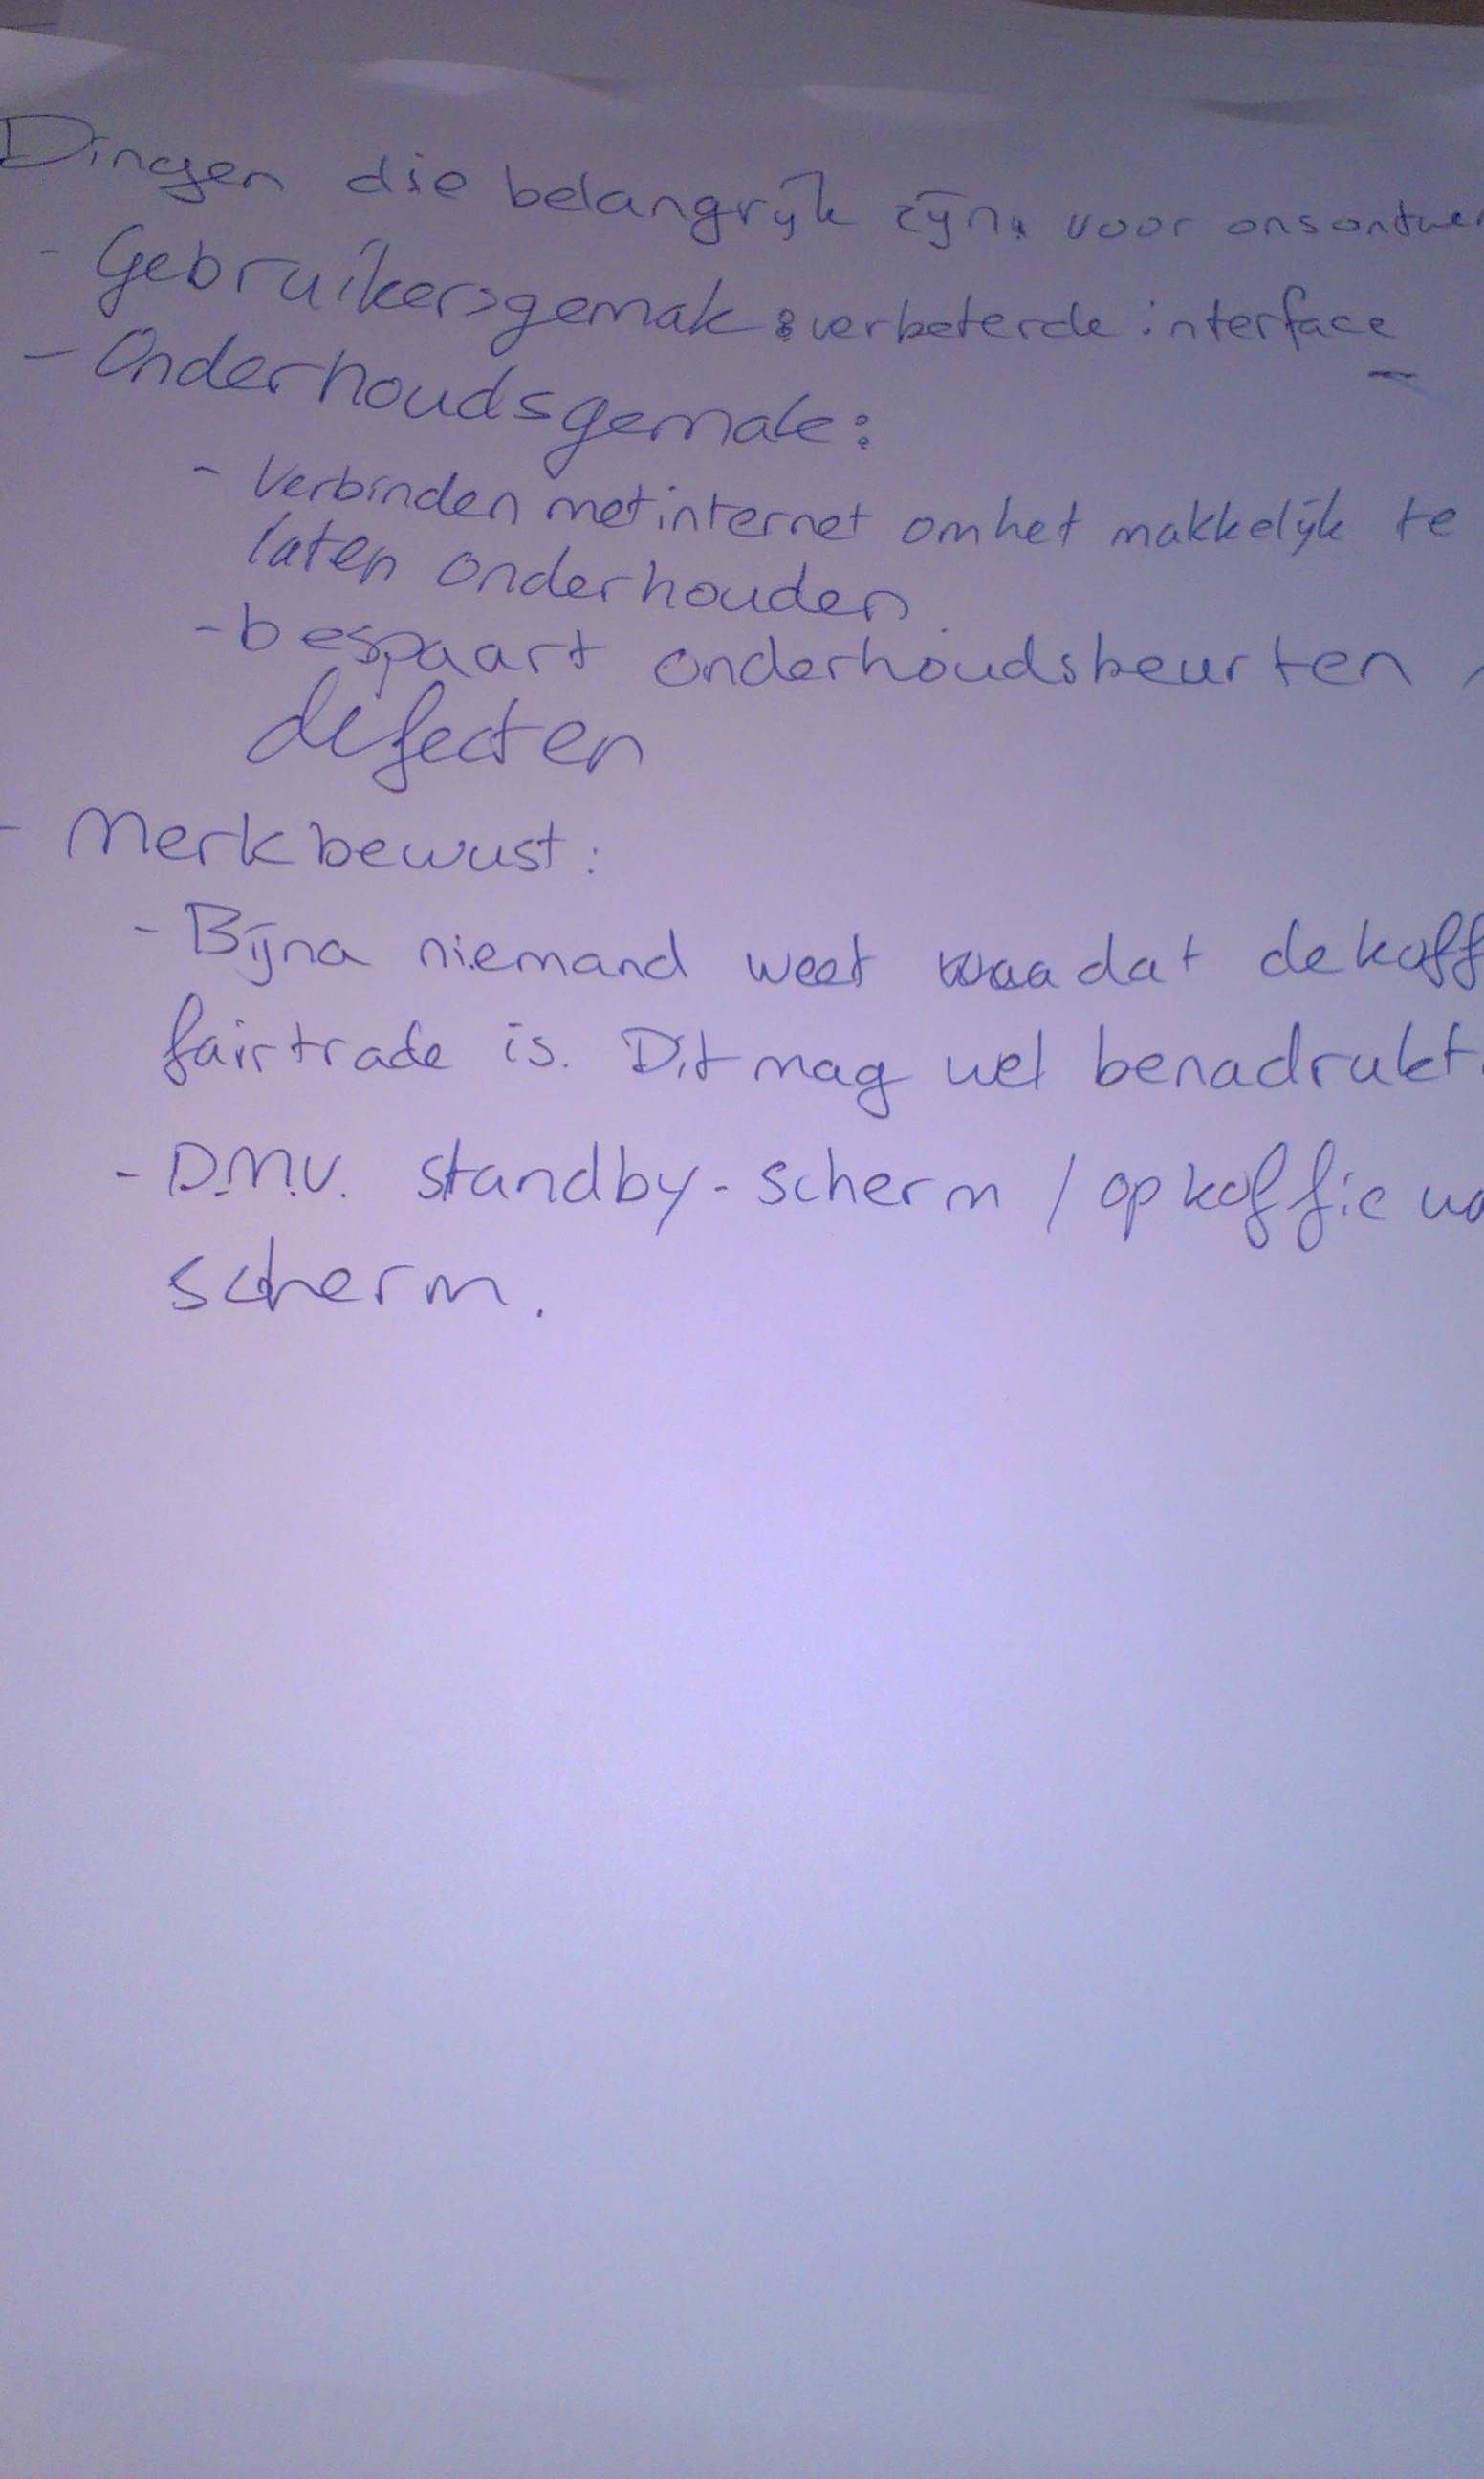 Dingen die belangrijk zijn voor ons ontwer
- Gebruikersgemak: verbeterde interface
- Onderhoudsgemak:
- Verbinden met internet om het makkelijk te
laten onderhouden.
- bespaart onderhoudsbeurten /
defecten
- Merkbewust:
- Bijna niemand weet dat de koff
fairtrade is. Dit mag wel benadrukt.
- D.M.V. standby-scherm / op koffie wa
scherm.